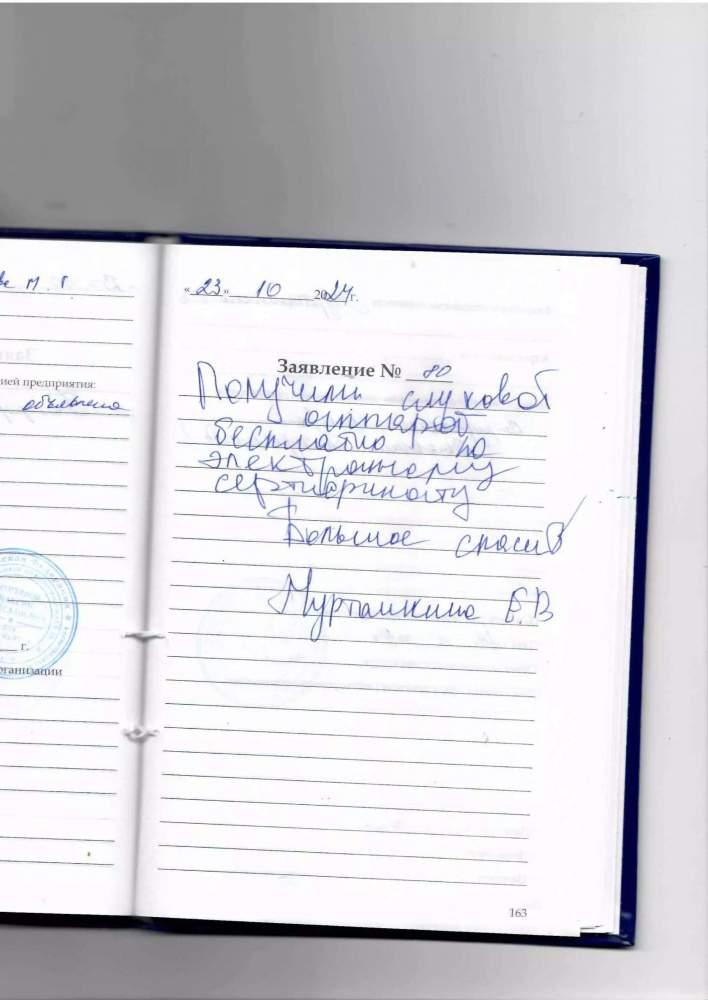 М. Г.
цией предприятия:
объявлена
г.
рганизации
«23» 10 2024г.
Заявление № 80
Получили слуховой
аппарат
бесплатно по
электронному
сертификату
Большое спасиб
Е.В
163